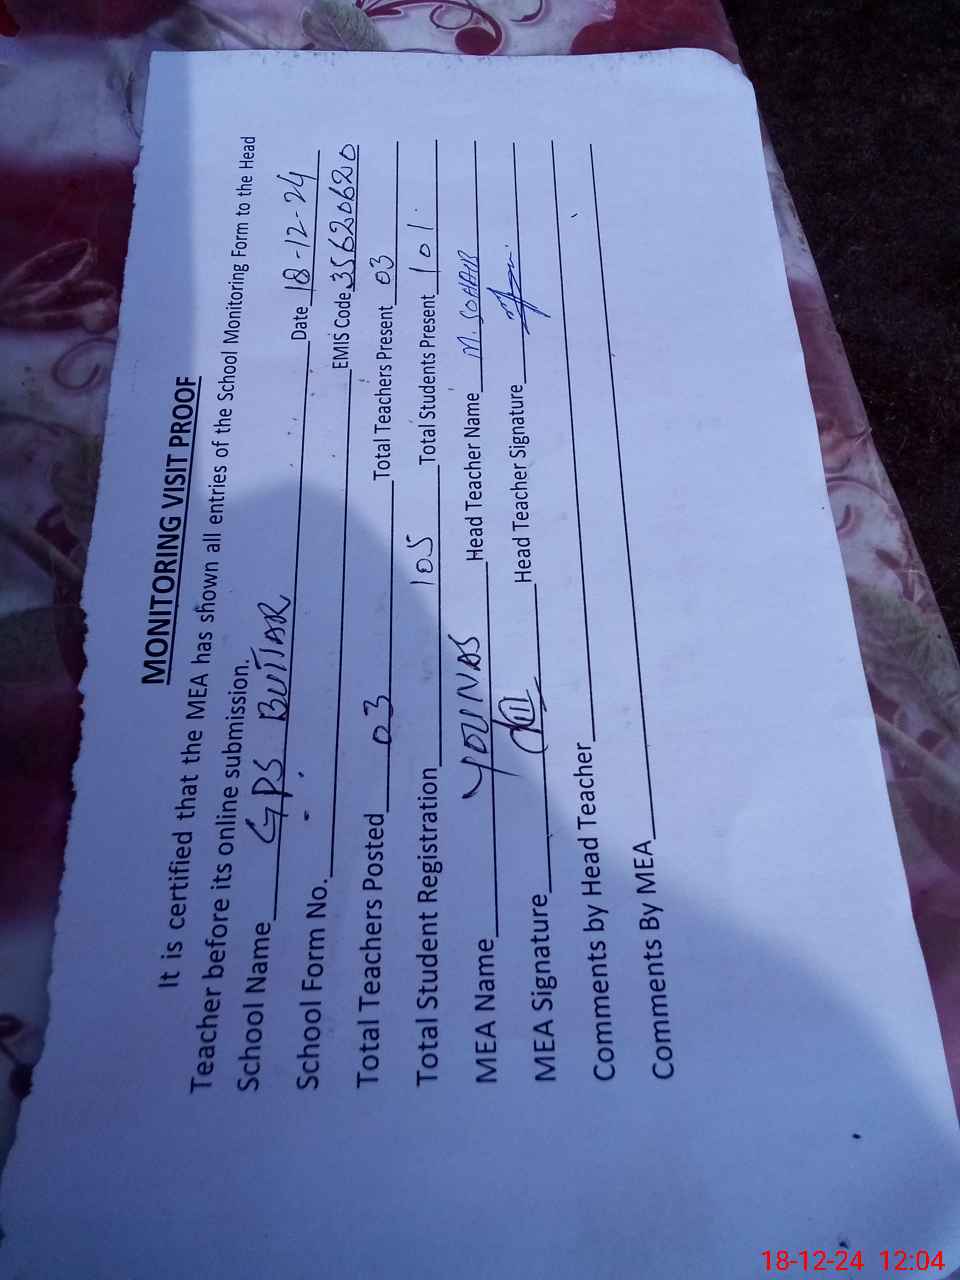 MONITORING VISIT PROOF
It is certified that the MEA has shown all entries of the School Monitoring Form to the Head
Teacher before its online submission.
School Name GPS BUTTAR Date 18-12-24
School Form No. EMIS Code 35620620
Total Teachers Posted 03 Total Teachers Present 03
Total Student Registration 105 Total Students Present 101.
MEA Name YOUNAS Head Teacher Name M. SOHAIB
MEA Signature Head Teacher Signature
Comments by Head Teacher
Comments By MEA
18-12-24 12:04